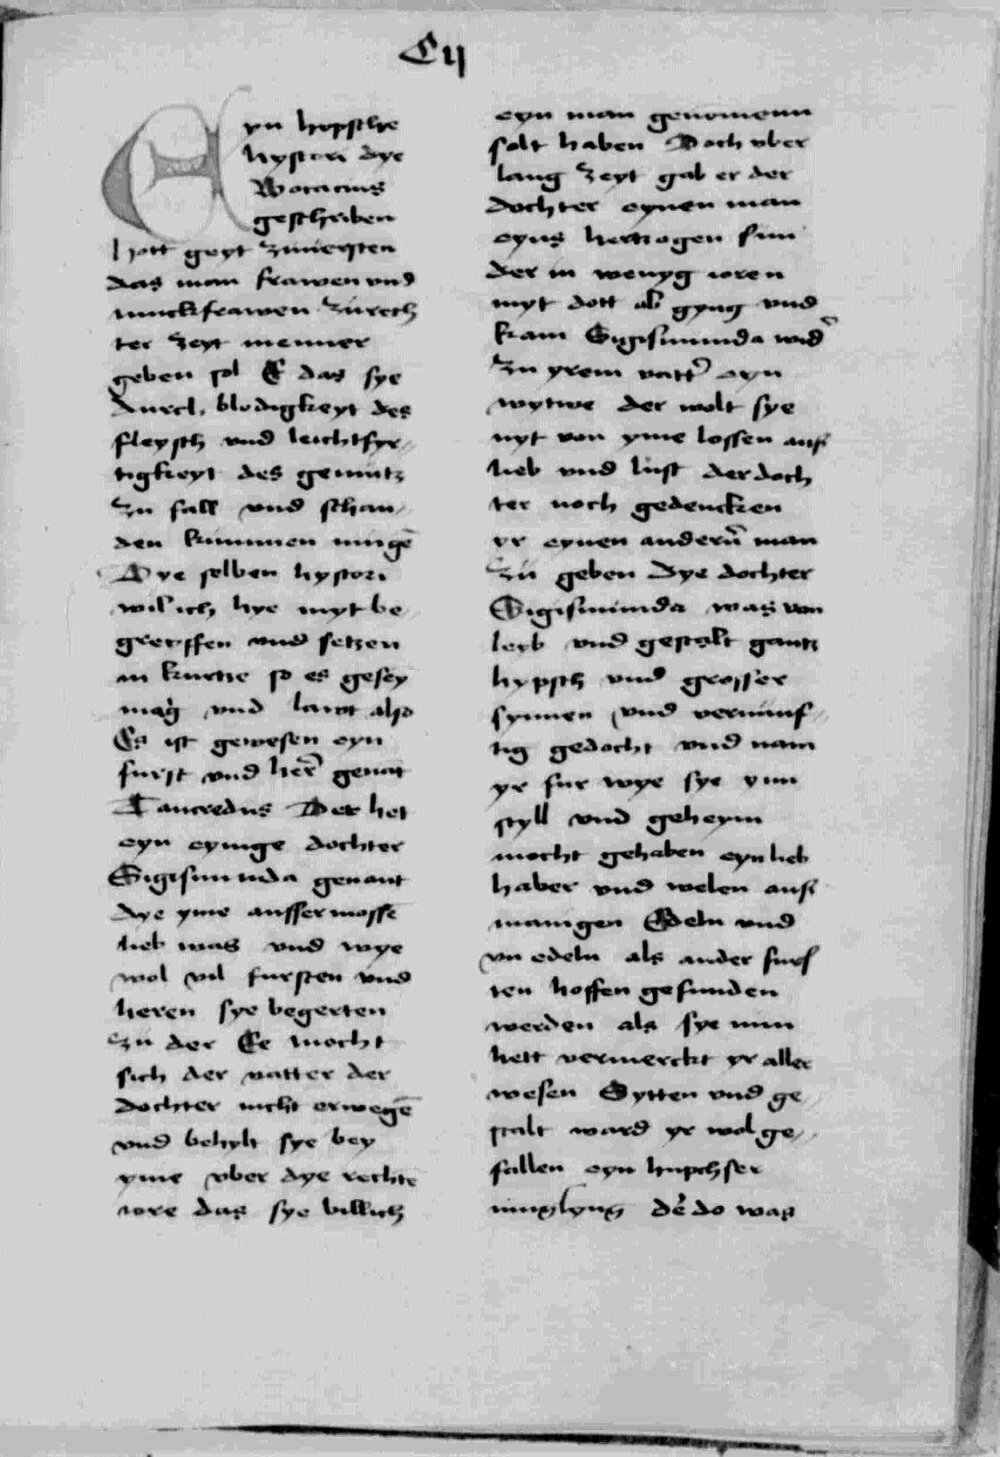 Cij
Eyn hypsche
hystori dye
Bocacius
geschriben
hott geyt zuuersten
das man frawen vnd
iunckfrawen zu rech
ter zeyt menner
geben sol Ee das sye
durch blodigkeyt des
fleysch vnd leichtfyr
tigkeyt des gemutz
zu fall vnd schan
den kummen mugē
Dye selben hystori
wil ich hye myt be
greyffen vnd setzen
in kurtze so es gesey
mag vnd lawt also
Es ist gewesen eyn
furst vnd her̄ genāt
Tancredus Der het
eyn eynige dochter
Sigismunda genant
dye yme aussermosse
lieb was vnd wye
wol vil fursten vnd
heren sye begerten
zu der Ee mocht
sich der vatter der
dochter nicht erwegē
vnd behylt sye bey
yme vber dye rechte
iore das sye billich
eyn man genomenn
solt haben Doch vber
lang zeyt gab er der
dochter eynen man
eyns hertzogen sun
der in wenyg ioren
myt dott ab gyng vnd
kam Sigismunda wid̄
zu yrem vatt̄ eyn
wytwe der wolt sye
nyt von yme lossen auß
lieb vnd lust der doch
ter noch gedencken
yr eynen andern̄ man
zu geben Dye dochter
Sigismunda was von
leyb vnd gestalt gantz
hypsch vnd grosser
synnen vnd vernunf
tig gedocht vnd nam
yr fur wye sye ynn
styll vnd geheym
mocht gehaben eyn lieb
haber vnd welen auß
manigen Edeln vnd
vn edeln als ander furs
ten hoffen gefunden
werden als sye nun
hett vermerckt yr aller
wesen Sytten vnd ge
stalt ward yr wol ge
fallen eyn hupchser
iunglyng dē do was